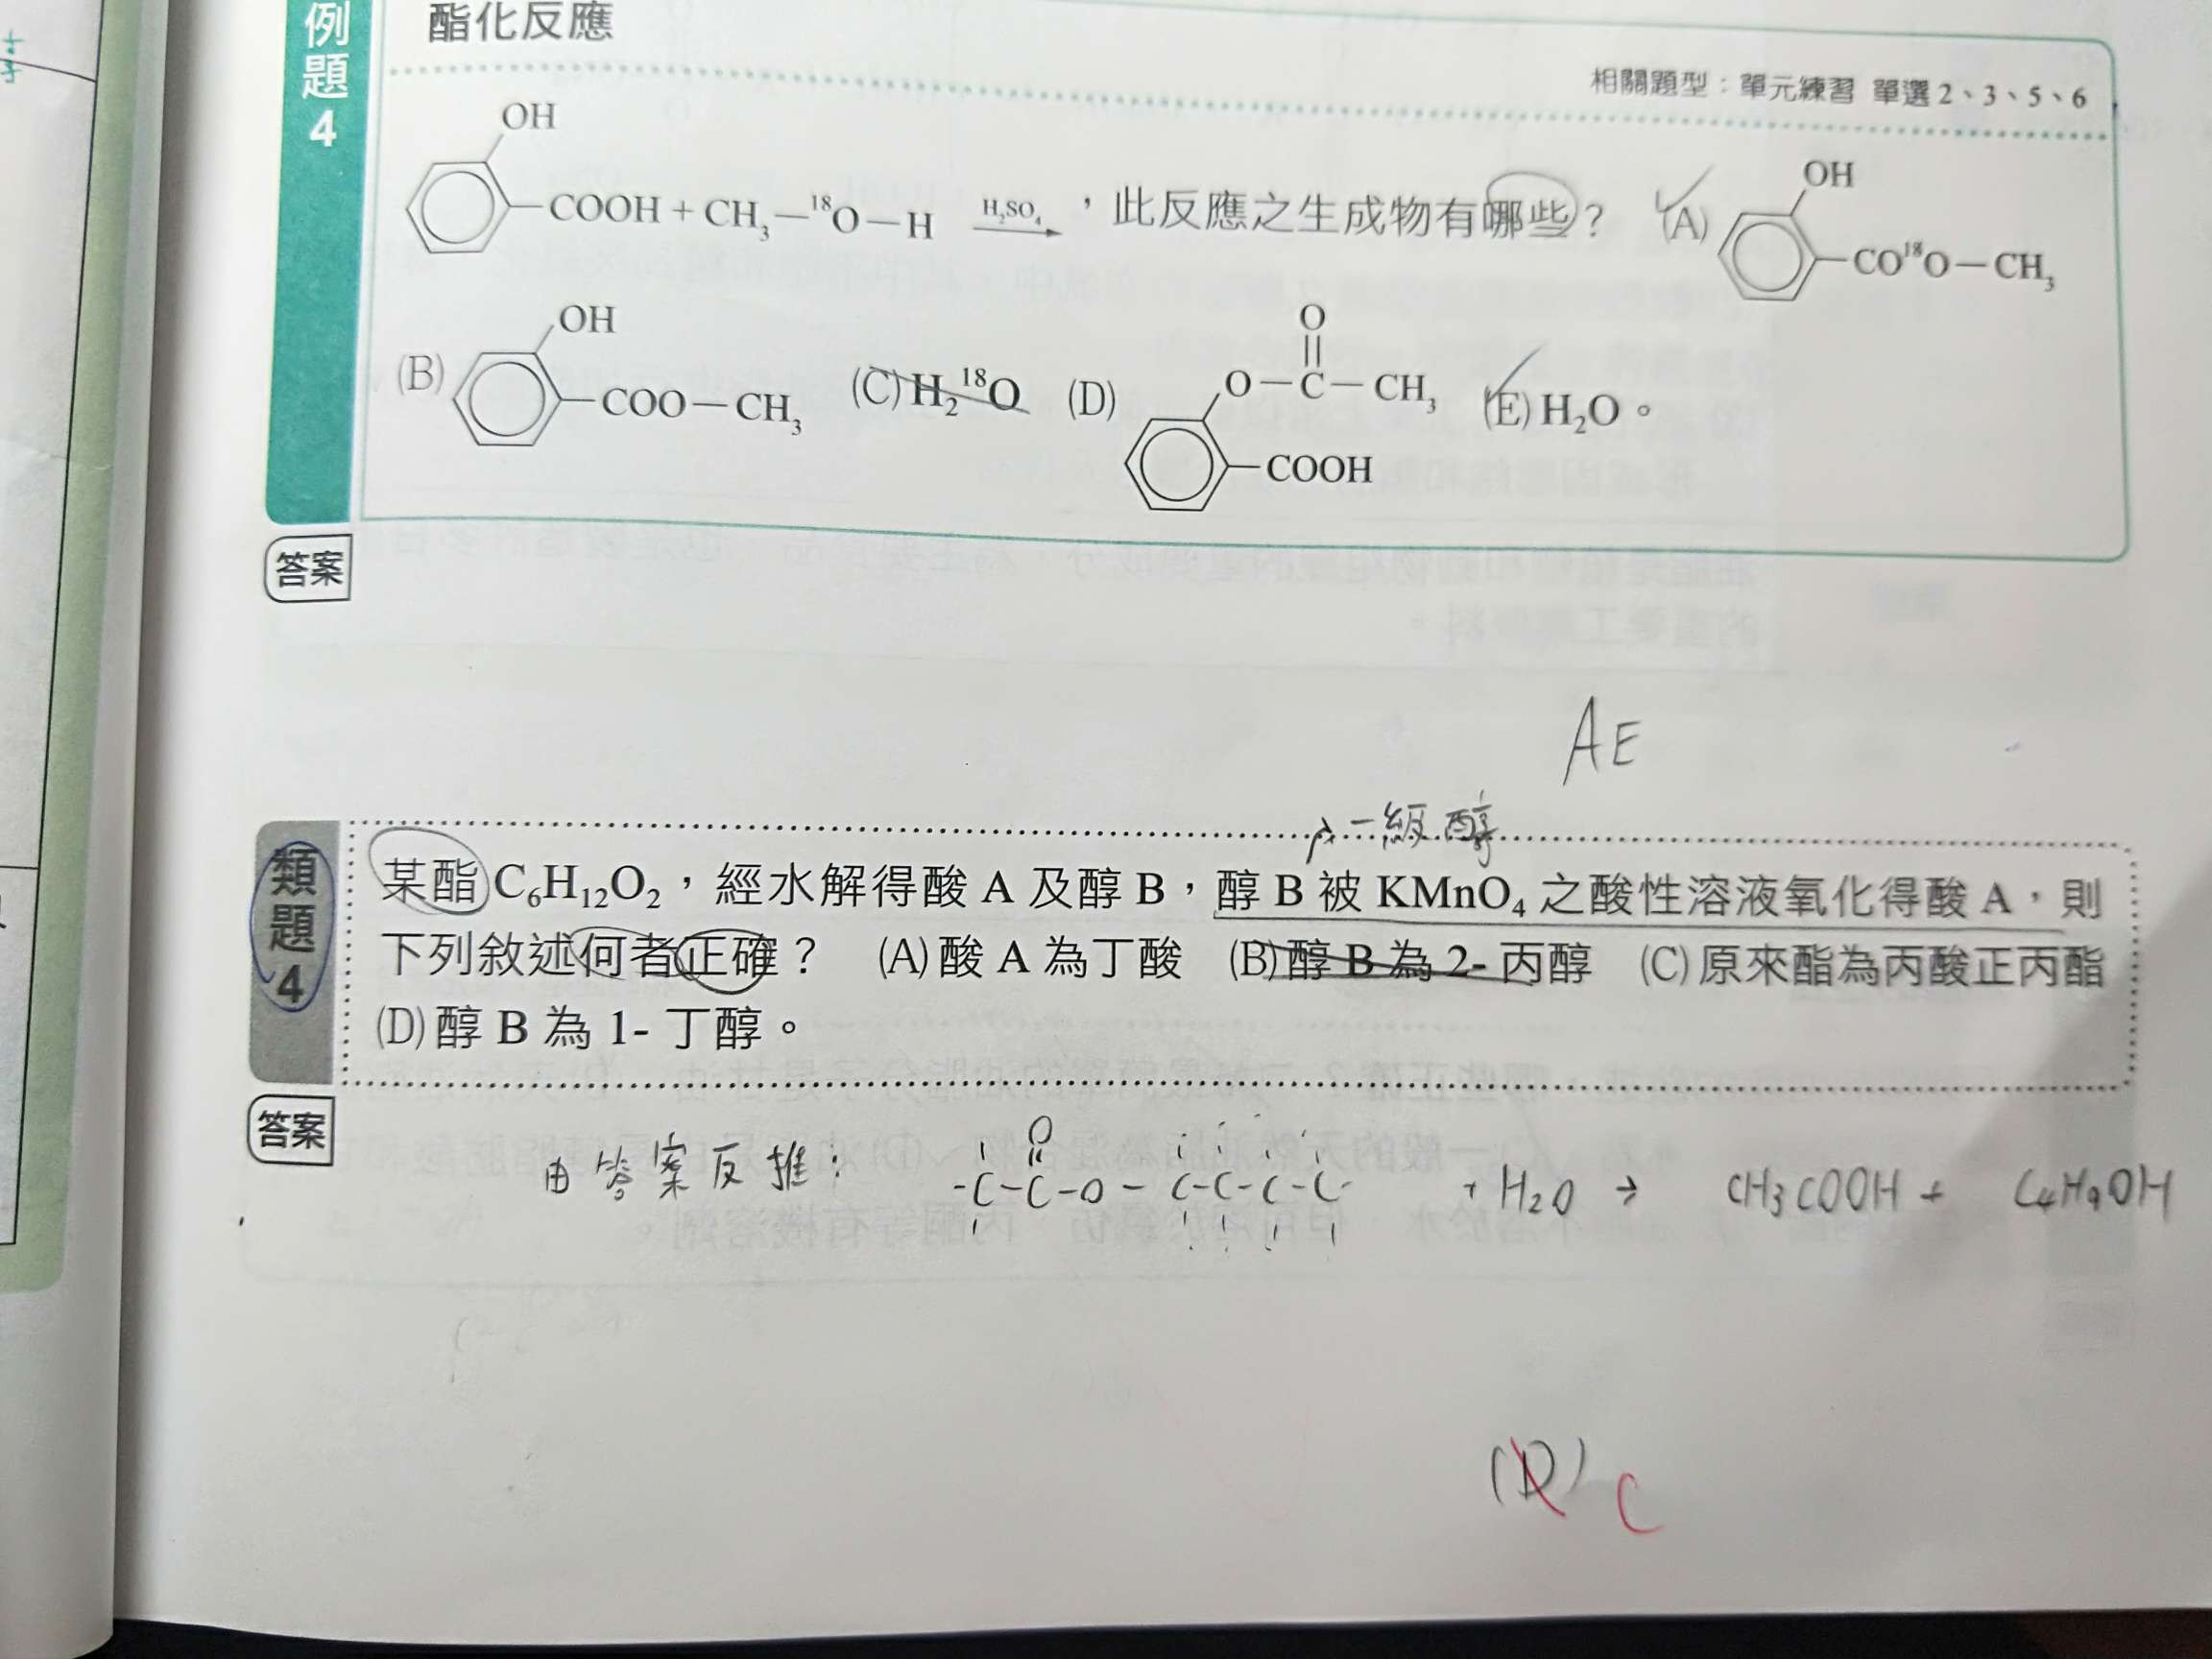 例題4
酯化反應
相關題型：單元練習 單選 2、3、5、6
OH
COOH + CH₃—¹⁸O—H H₂SO₄ ，此反應之生成物有哪些？ (A)
OH
CO¹⁸O—CH₃
(B)
OH
COO—CH₃
(C) H₂¹⁸O (D)
O
O—C—CH₃
COOH
(E) H₂O。
答案
AE
一級醇
類題4
某酯 C₆H₁₂O₂，經水解得酸 A 及醇 B，醇 B 被 KMnO₄ 之酸性溶液氧化得酸 A，則
下列敘述何者正確？ (A) 酸 A 為丁酸 (B) 醇 B 為 2- 丙醇 (C) 原來酯為丙酸正丙酯
(D) 醇 B 為 1- 丁醇。
答案
由答案反推：
O
-C-C-O-C-C-C-C- + H₂O → CH₃COOH + C₄H₉OH
(D) C